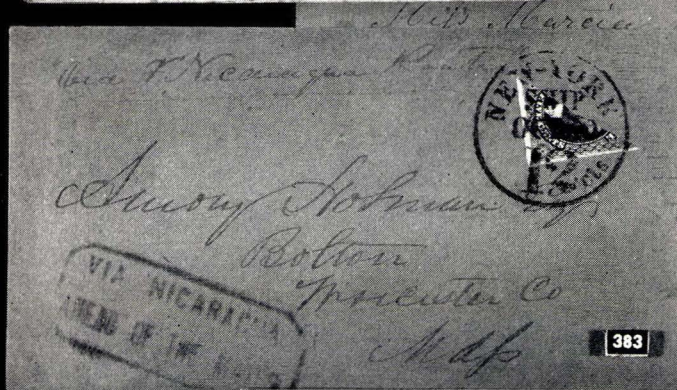 Miss Marcia
Via Nicaragua Route
NEW-YORK
SHIP
12 Cts
Amory Holman Esq
Bolton
Worcester Co
Mass
VIA NICARAGUA
AHEAD OF THE MAILS
383